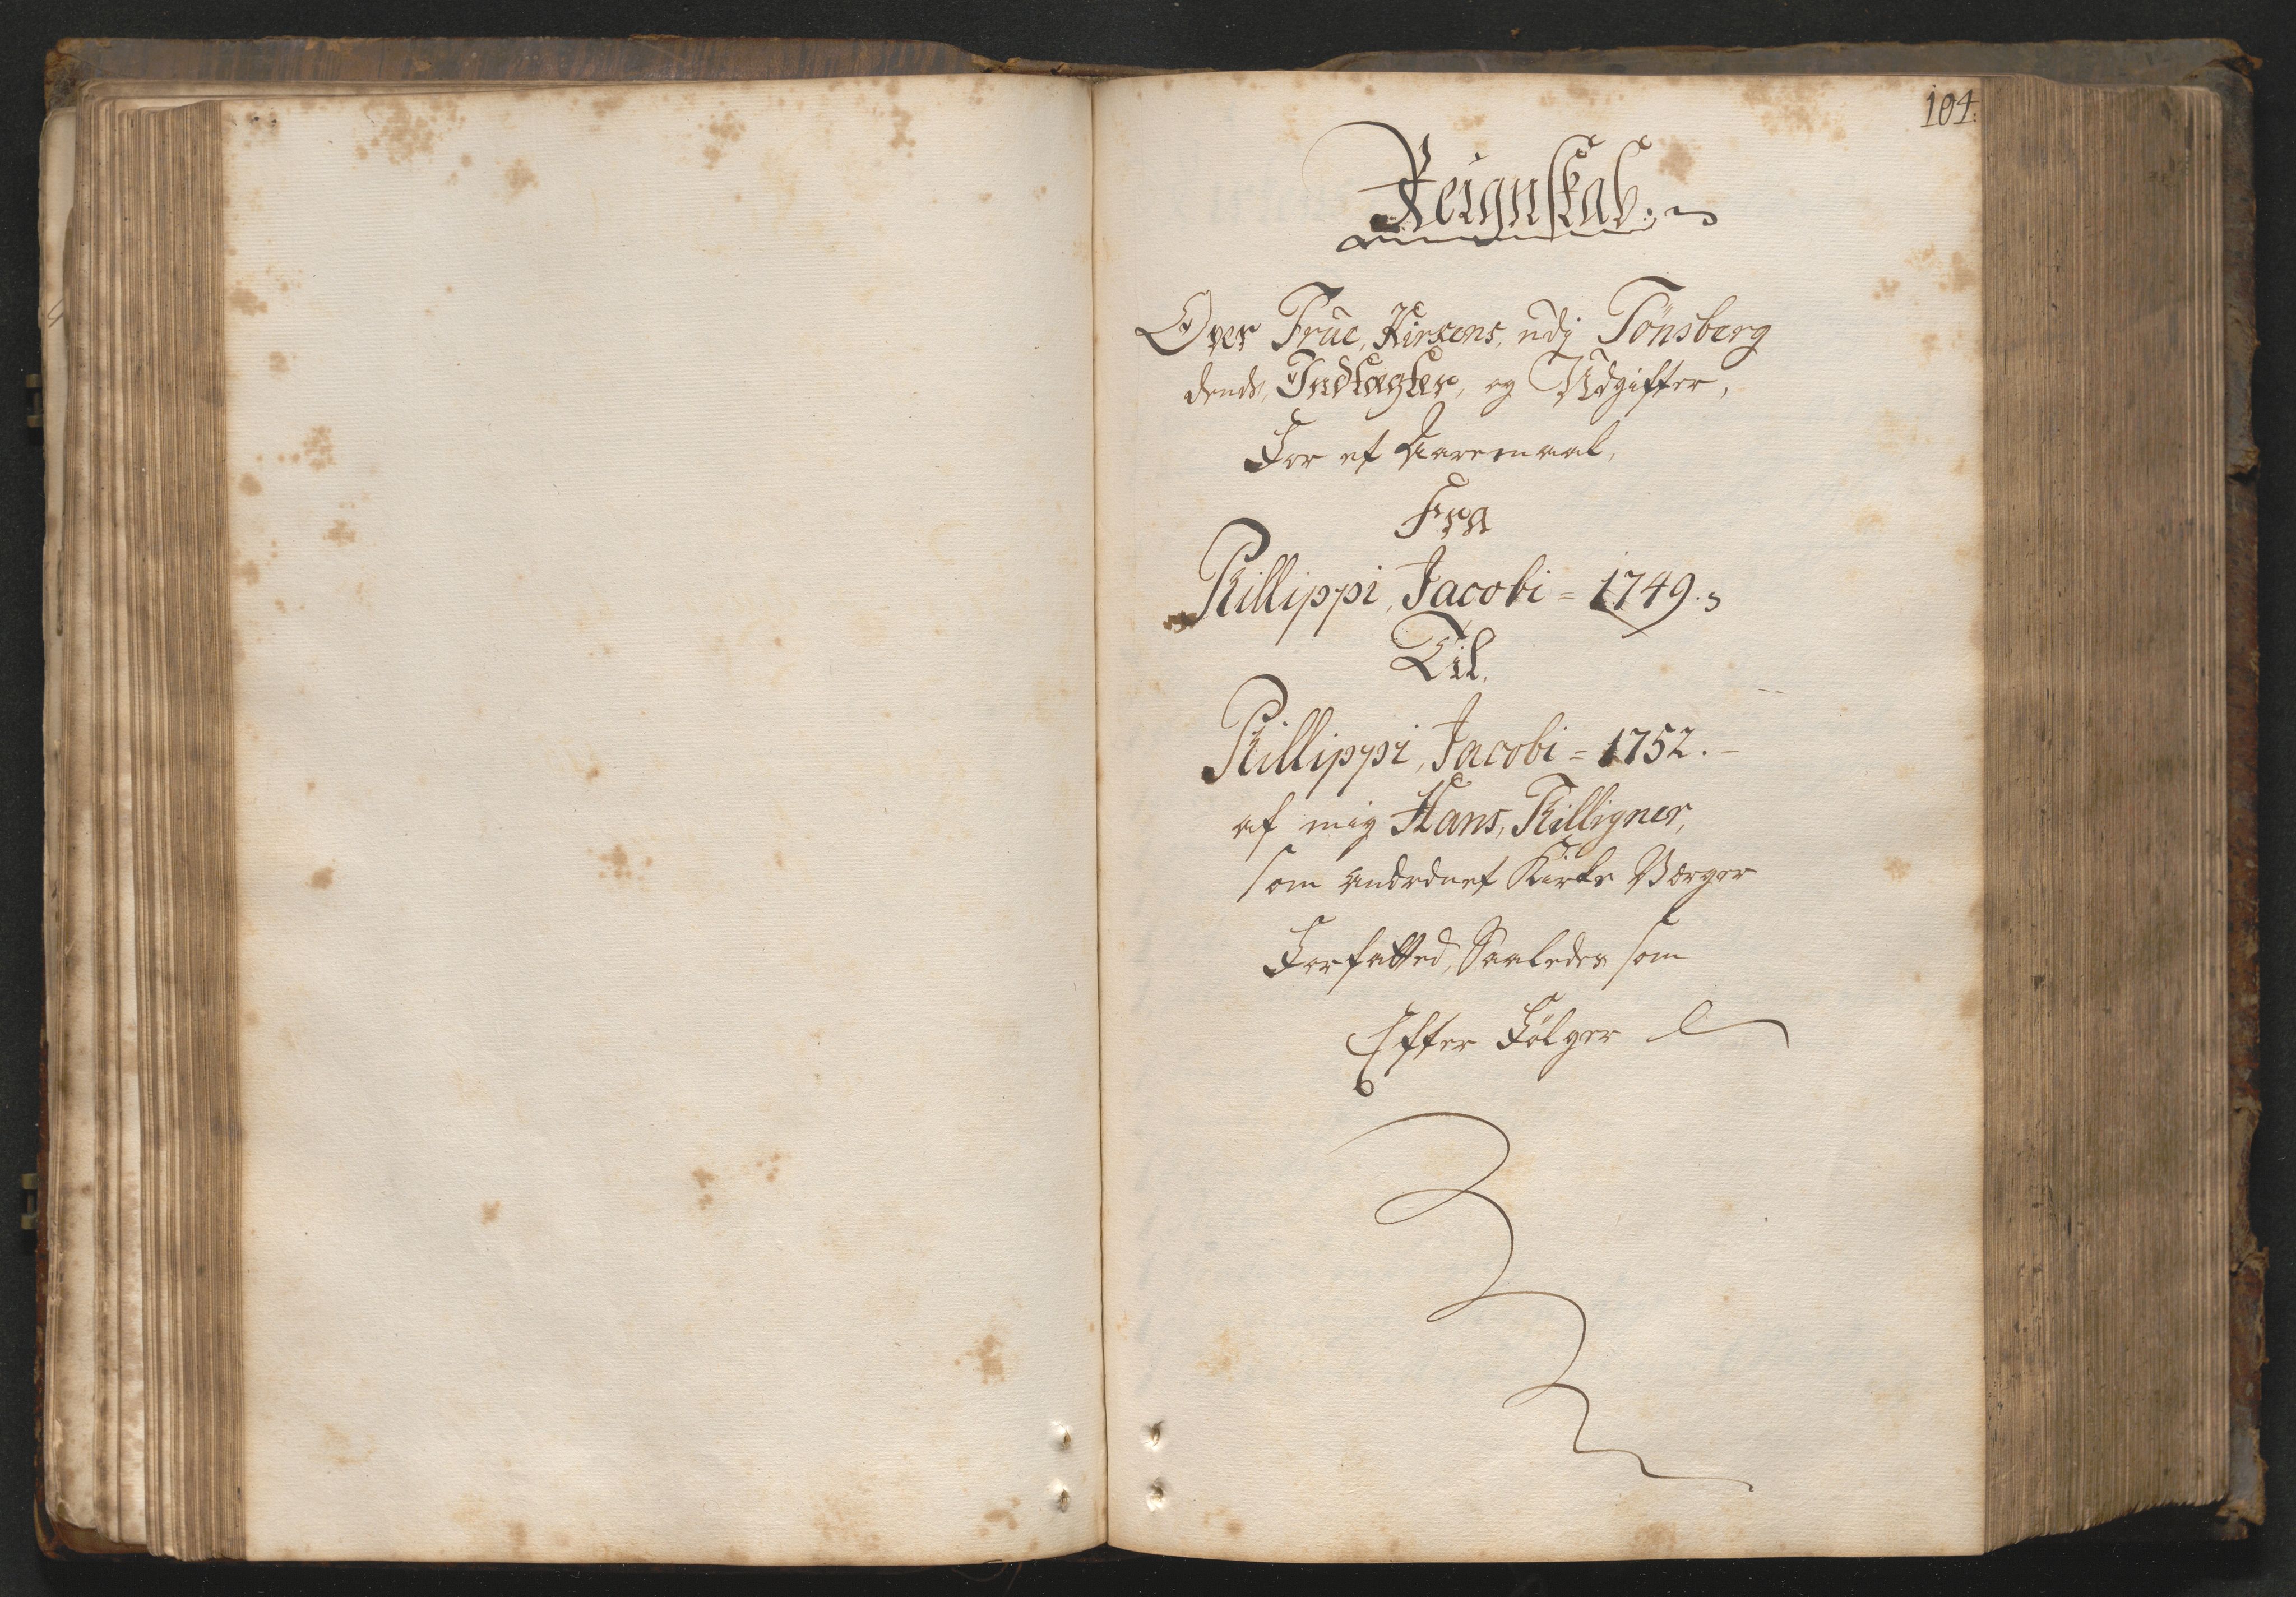 104.
Reignskab.
Over Frue, Kirkens, udj Tönsberg
dends, Indtægter, og Udgifter,
For et Aaremaal,
Fra
Phillippi, Jacobi = 1749.
Til,
Phillippi, Jacobi = 1752. -
af mig Hans, Killigner,
som andrdnet Kirke Værger
Forfatted, Saaledes som
Efter Fölger